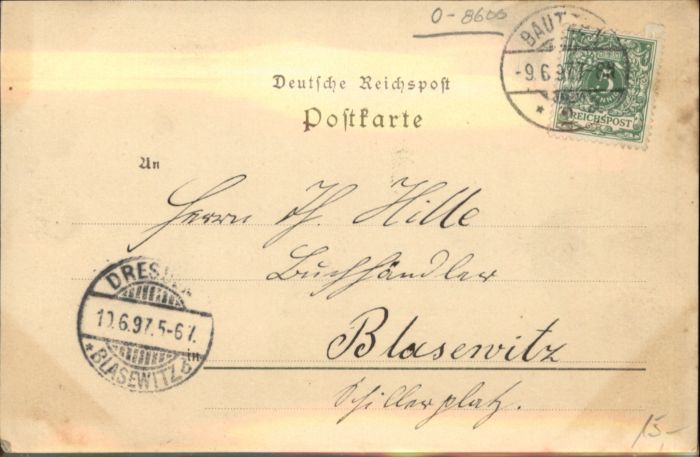 O-8600
BAUTZEN
-9.6.97.
5
REICHSPOST
Deutsche Reichspost
Postkarte
An
Herrn Th. Hille
Buchhändler
in Blasewitz
Schillerplatz.
DRESDEN
10.6.97.5-6V.
* BLASEWITZ
15,-